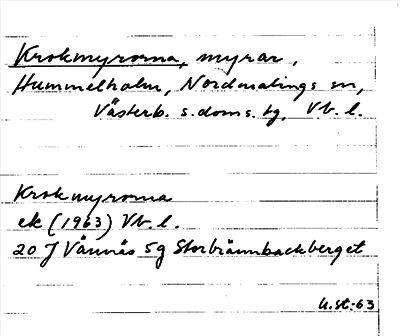 Krokmyrorna, myrar,
Hummelholm, Nordmalings sn,
Västerb. s. doms. tg, Vb. l.
Krokmyrorna
ek (1963) Vb. l.
20 J Vännäs 5g Storbrännbackberget
U.St. 63